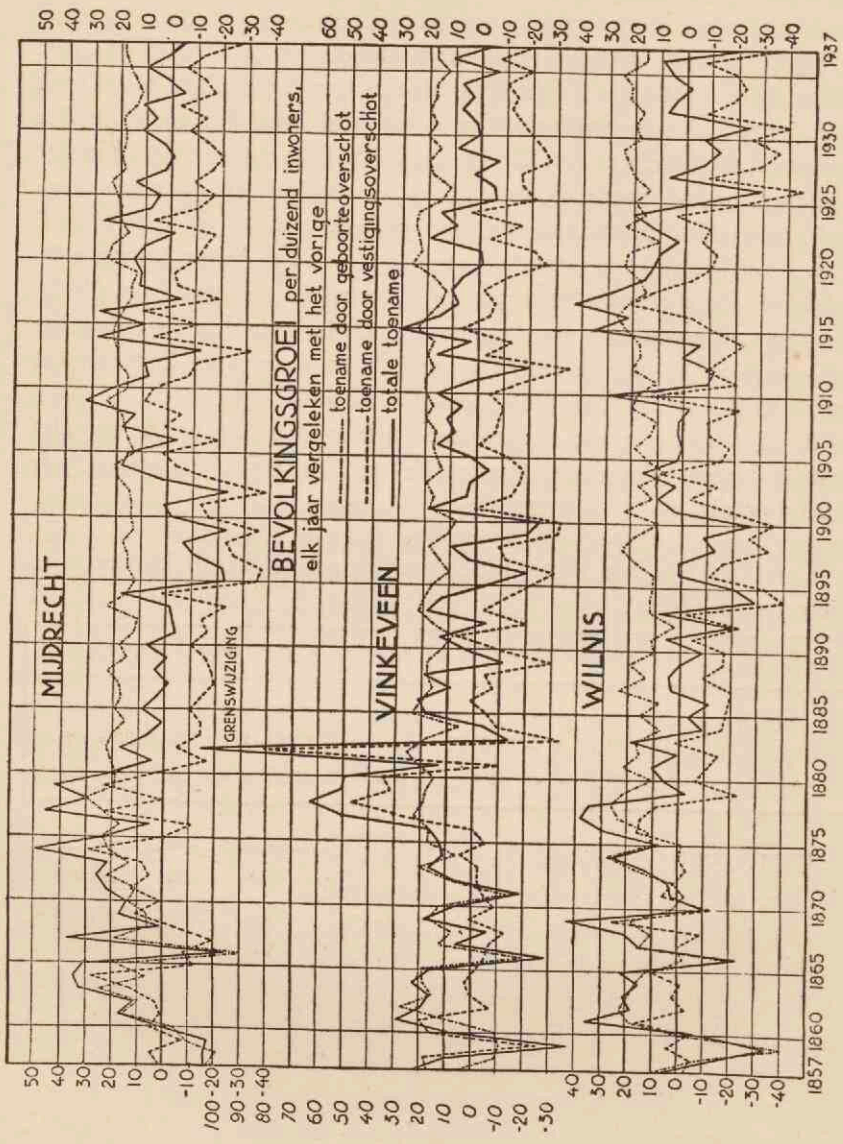 MIJDRECHT
GRENSWIJZIGING
BEVOLKINGSGROEI per duizend inwoners,
elk jaar vergeleken met het vorige
toename door geboorteoverschot
toename door vestigingsoverschot
totale toename
VINKEVEEN
WILNIS
50
40
30
20
10
0
-10
100-20
90-30
80-40
70
60
50
40
30
20
10
0
-10
-20
-30
40
30
20
10
0
-10
-20
-30
-40
50
40
30
20
10
0
-10
-20
-30
-40
60
50
40
30
20
10
0
-10
-20
-30
40
30
20
10
0
-10
-20
-30
-40
1857 1860 1865 1870 1875 1880 1885 1890 1895 1900 1905 1910 1915 1920 1925 1930 1937